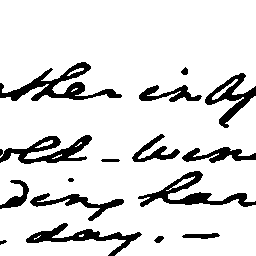 ther in Ap
old - Win
ding har
day. -